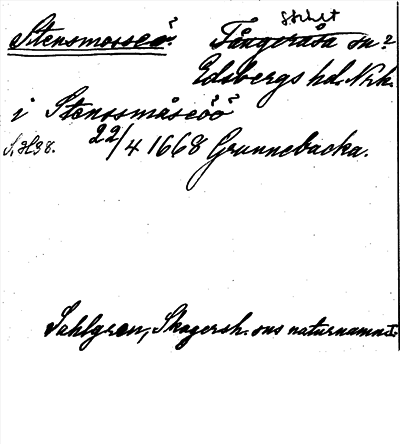 Stensmosseö? Tångeråsa sn?
Edsbergs hd. Nrk.
i Stenssmåseöö??
S. H 98. 22/4 1668 Grunnebacka.
Sahlgren, Skagersh. sns naturnamn I.